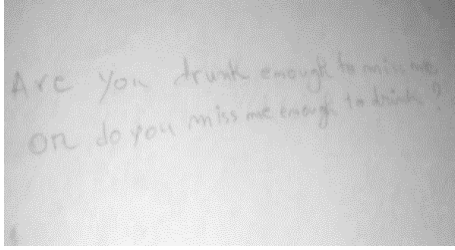 Are you drunk enough to miss me
or do you miss me enough to drink ?